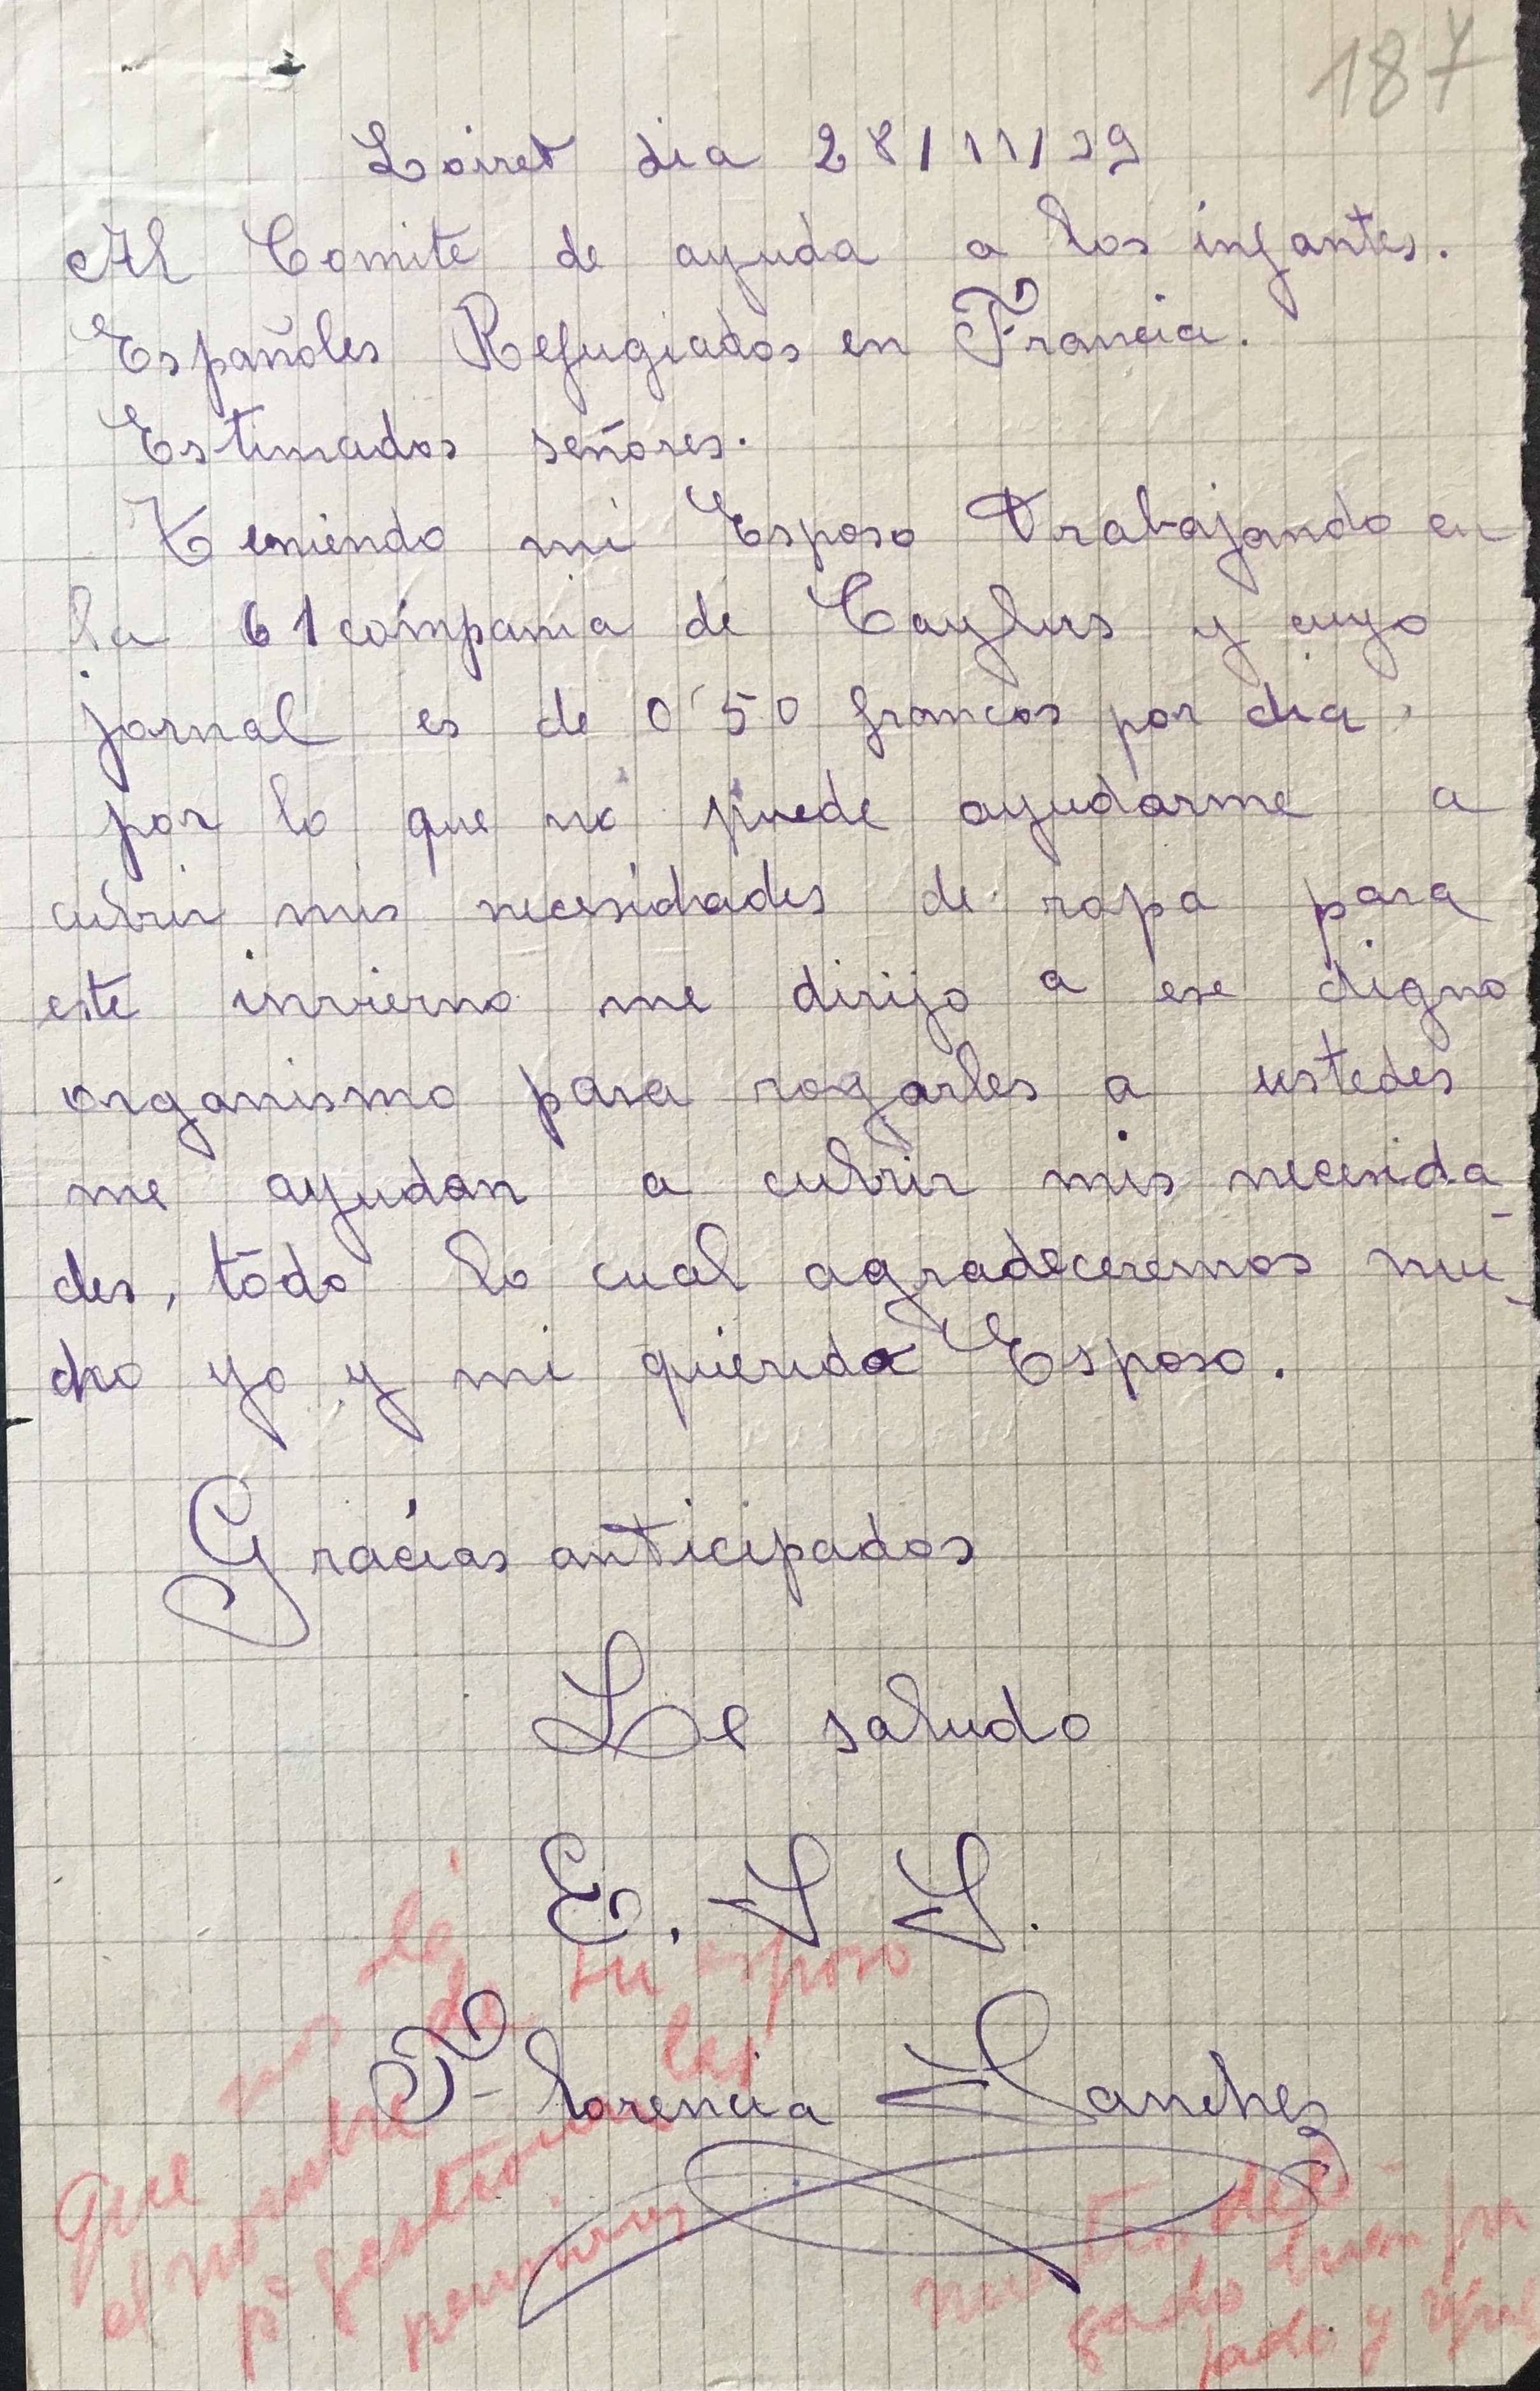 187
Loiret dia 28/11/39
Al Comite de ayuda a los infantes.
Españoles Refugiados en Francia.
Estimados señores.
Teniendo mi Esposo trabajando en
la 61 compania de Caylus y cuyo
jornal es de 0'50 francos por dia,
por lo que no puede ayudarme a
cubrir mis necesidades de ropa para
este invierno me dirijo a ese digno
organismo para rogarles a ustedes
me ayudan a cubrir mis necesida-
des, todo lo cual agradeceremos mu-
cho yo y mi querido Esposo.
Gracias anticipados
Le saludo
E. S S.
Florencia Sanches
que nos dé
el nombre de su esposo
pª gestionarles
permisos